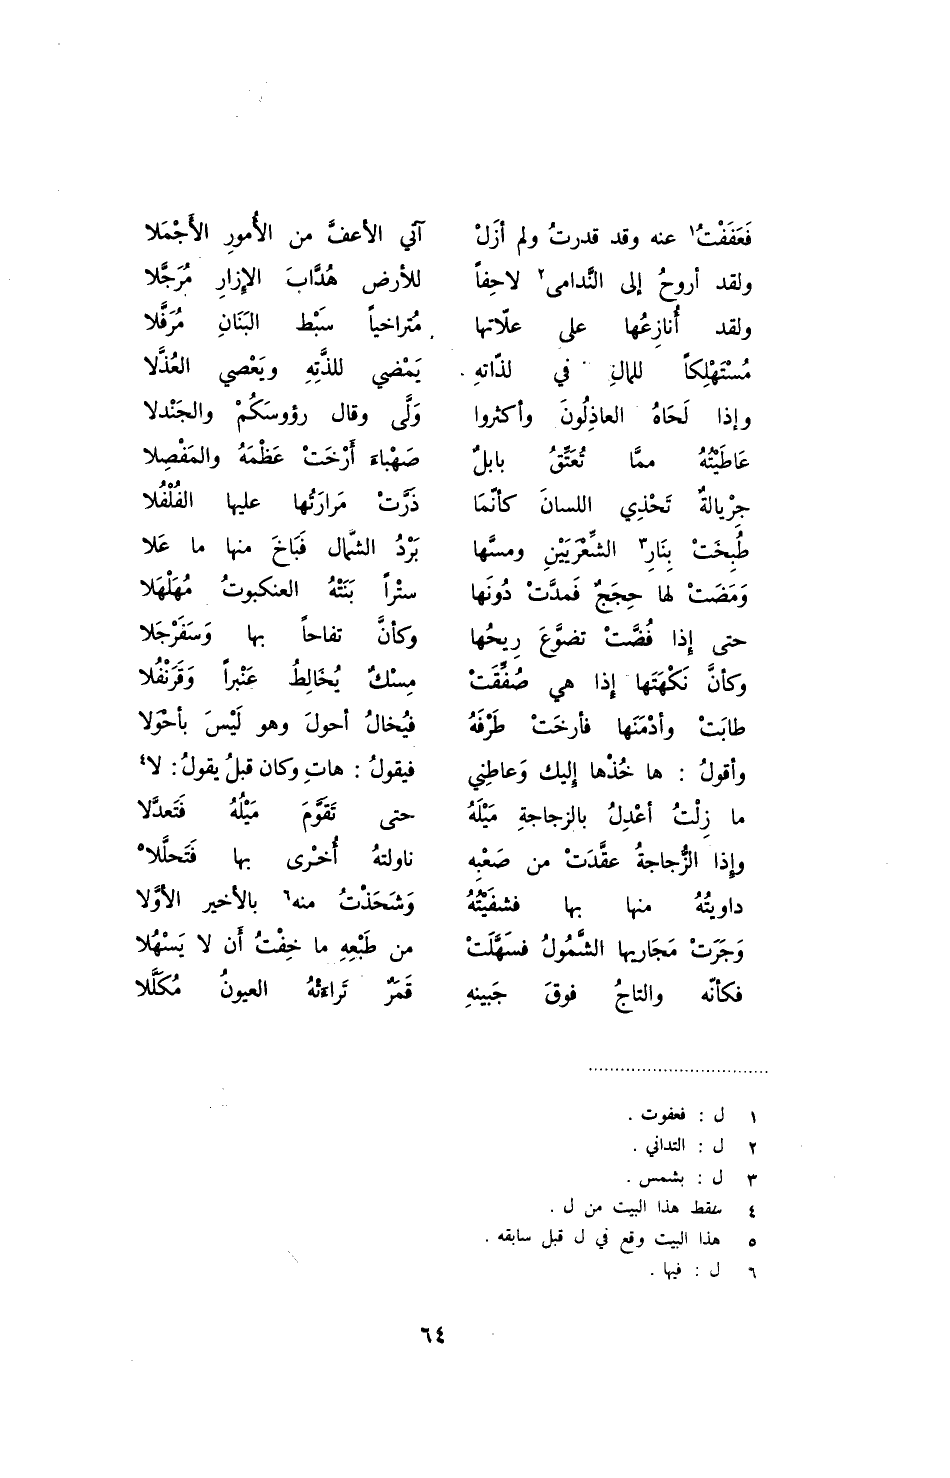 فَعَفَفْتُ١ عنه وقد قدرتُ ولم أزَلْ آتي الأعفَّ من الأُمورِ الأَجْمَلا
ولقد أروحُ إلى النَّدامى٢ لاحِفاً للأرض هُدَّابَ الإزارِ مُرَجَّلا
ولقد أُنازِعُها على علّاتها مُتراخياً سَبْط البَنَانِ مُرَفَّلا
مُسْتَهْلِكاً للمالِ في لذّاتهِ يَمْضي للذَّتِهِ ويَعْصي العُذَّلا
وإذا لَحَاهُ العاذِلُونَ وأكثروا وَلَّى وقال رؤوسَكُمْ والجَنْدلا
عَاطَيْتُهُ ممَّا تُعَتِّقُ بابلٌ صَهْباءَ أَرْخَتْ عَظْمَهُ والمَفْصِلا
جِرْيالةٌ تَحْذِي اللسانَ كأنّمَا ذَرَّتْ مَرارَتُها عليها الفُلْفُلا
طُبِخَتْ بِنَارِ٣ الشِّعْرَيَيْنِ ومسَّها بَرْدُ الشَّمال فَبَاخَ منها ما عَلا
وَمَضَتْ لها حِجَجٌ فَمدَّتْ دُونَها ستْراً بَنَتْهُ العنكبوتُ مُهَلْهَلا
حتى إِذا فُضَّتْ تضوَّعَ رِيحُها وكأنَّ تفاحاً بها وَسَفَرْجَلا
وكأنَّ نَكْهَتَها إذا هي صُفِّقَتْ مِسْكٌ يُخَالِطُ عَنْبراً وَقَرَنْفُلا
طابَتْ وأدْمَنَها فأرخَتْ طَرْفَهُ فيُخالُ أحولَ وهو لَيْسَ بأحْوَلا
وأقولُ : ها خُذْها إليك وَعاطِني فيقولُ : هاتِ وكان قبلُ يقولُ : لا٤
ما زِلْتُ أعْدِلُ بالزجاجةِ مَيْلَهُ حتى تَقَوَّمَ مَيْلُهُ فَتَعدَّلا
وإذا الزُّجاجةُ عقَّدَتْ من صَعْبِه ناولتهُ أُخْرى بها فَتَحلَّلا٥
داويتُهُ منها بها فشفَيْتُهُ وَشَحَذْتُ منه٦ بالأخير الأوَّلا
وَجَرَتْ مَجَاريها الشَّمُولُ فسَهَّلَتْ من طَبْعِهِ ما خِفْتُ أَن لا يَسْهُلا
فكأنّه والتاجُ فوقَ جَبينهِ قَمَرٌ تَراءَتْهُ العيونُ مُكَلَّلا
١ ل : فعفوت .
٢ ل : التداني .
٣ ل : بشمس .
٤ سقط هذا البيت من ل .
٥ هذا البيت وقع في ل قبل سابقه .
٦ ل : فيها .
٦٤